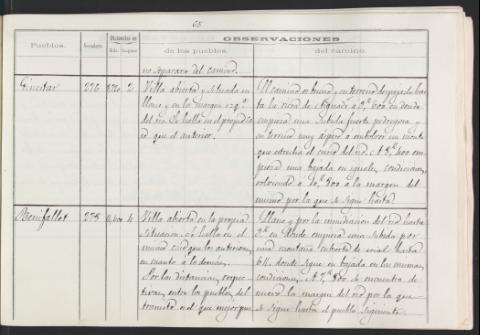 68
OBSERVACIONES
Pueblos. Vecindario Distancias en
Kils. Leguas
de los pueblos. del camino.
no separarse del camino.
Ginestar 276 2
Villa abierta y situada en
llano y en la margen izqª.
del rio. Se halla en el propio ca-
so que el anterior.
El camino es bueno y en terreno despejado has-
ta la riera de donde
empieza una subida fuerte pedregosa y
en terreno muy aspero
que estrecha el curso del rio. A 8,400 em-
pieza una bajada en iguales condiciones,
volviendo á 10,800 a la margen del
mismo por la que se sigue hasta
Benifallet 4
Villa abierta en la propia
situacion. Se halla en el
mismo caso que los anteriores,
en cuanto á lo demás.
Por las distancias, respec-
tivas, entre los pueblos del
transito es el que mejor pue-
Llano y por la inmediacion del rio hasta
2 en donde empieza una subida por
una montaña cubierta de hasta
6 K. donde sigue en bajada en las mismas
condiciones. A 7 800 se encuentra de
nuevo la margen del rio por la que
se sigue hasta el pueblo siguiente.